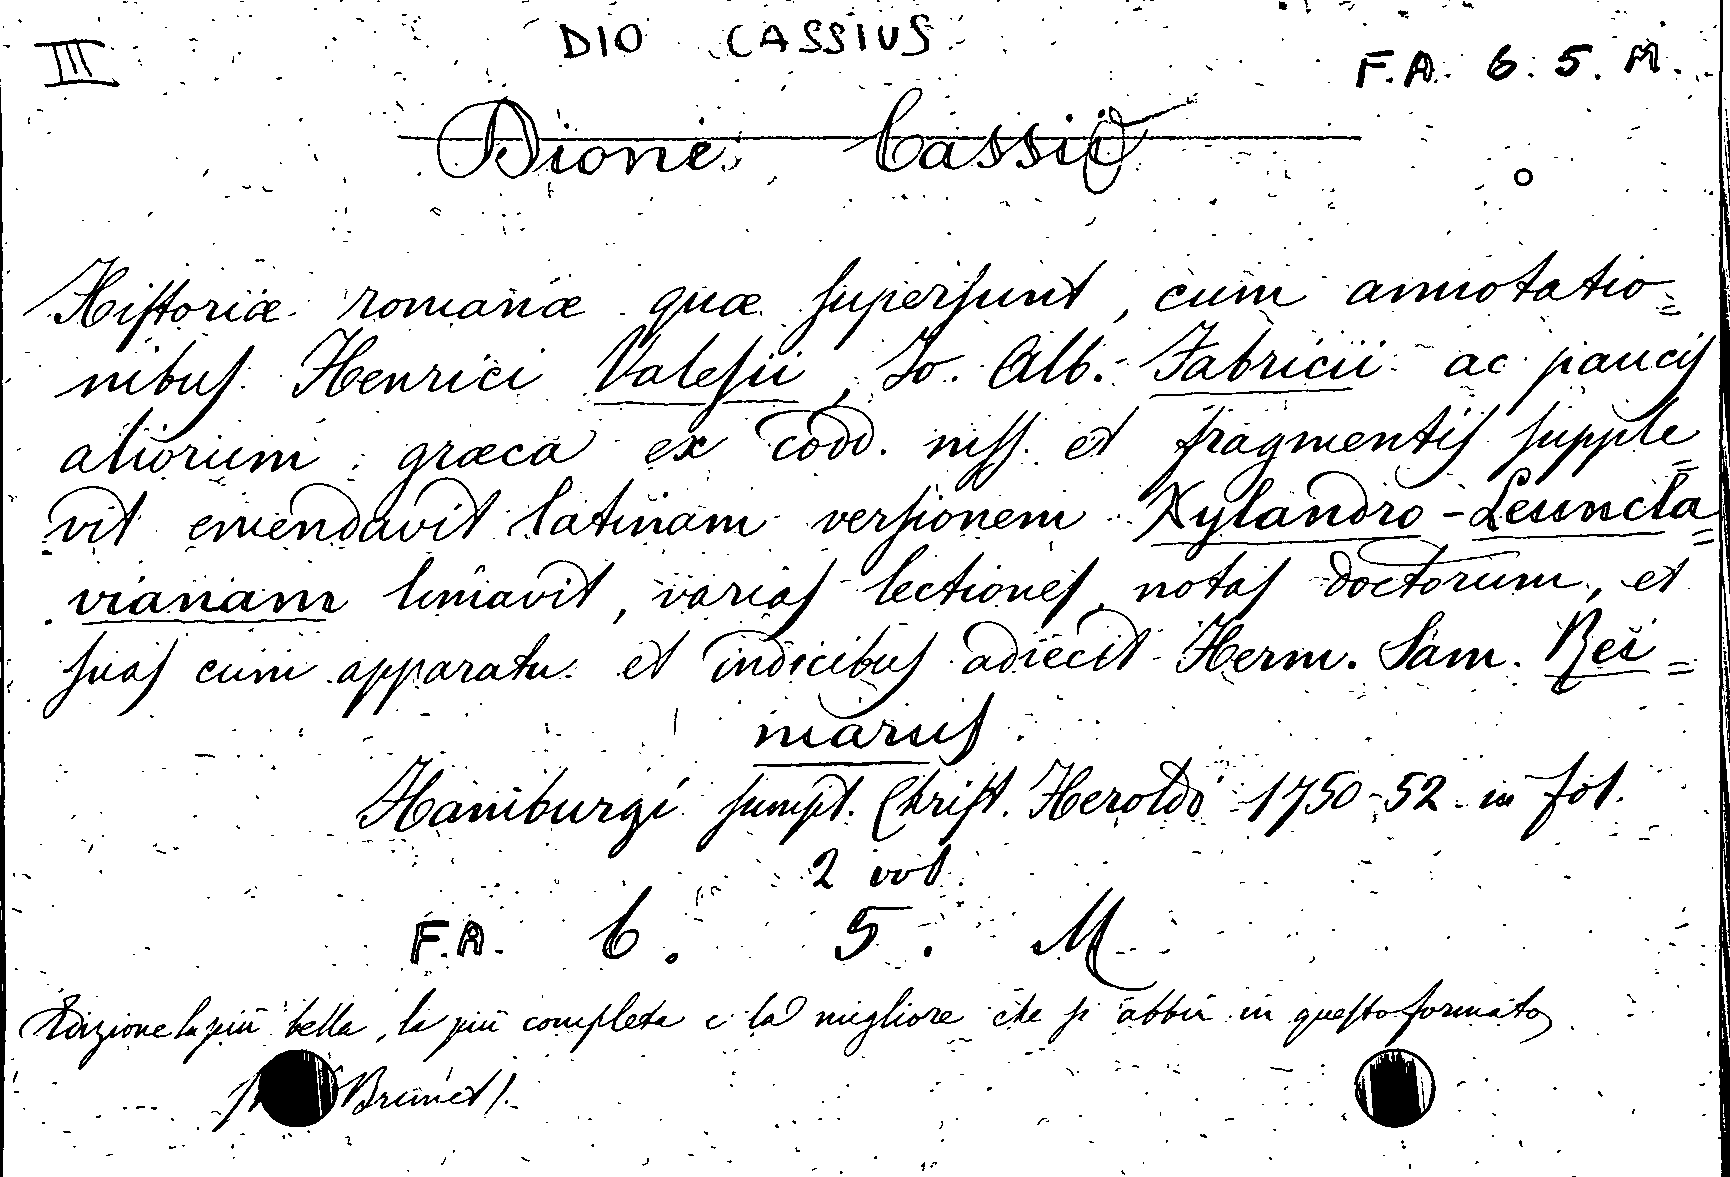 III
DIO CASSIUS
F.A. 6. 5. M.
Dione Cassio
Historiæ romanæ quæ supersunt, cum annotatio=
nibus Henrici Valesii, Jo. Alb. Fabricii ac paucis
aliorum græca ex codd. mss. et fragmentis supple=
vit emendavit latinam versionem Xylandro-Leuncla=
vianam limavit, varias lectiones, notas doctorum, et
suas cum apparatu et indicibus adiecit Herm. Sam. Rei=
marus.
Hamburgi sumpt. Christ. Heroldi 1750-52 in fol.
2 vol.
F.A. 6. 5. M
Edizione la più bella, la più completa e la migliore che si abbia in questo formato
Brunet).